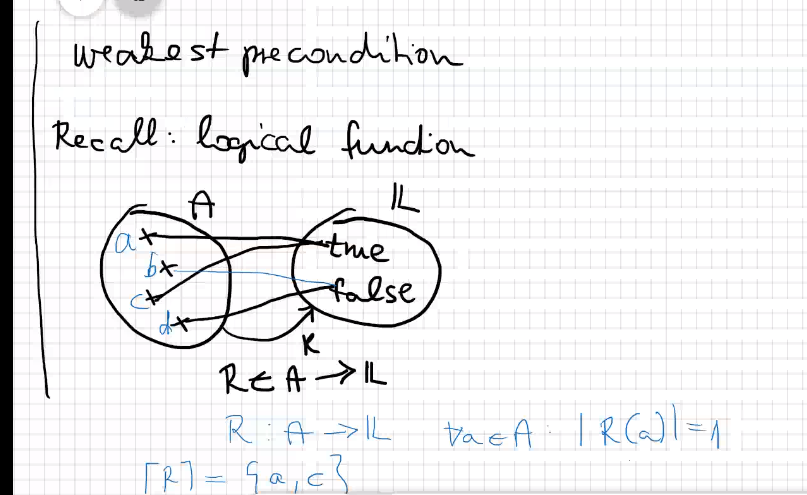 weakest precondition
Recall: logical function
A 𝕃
a true
b
c false
d
R
R ∈ A → 𝕃
R : A → 𝕃 ∀a∈A: |R(a)| = 1
⌈R⌉ = {a, c}